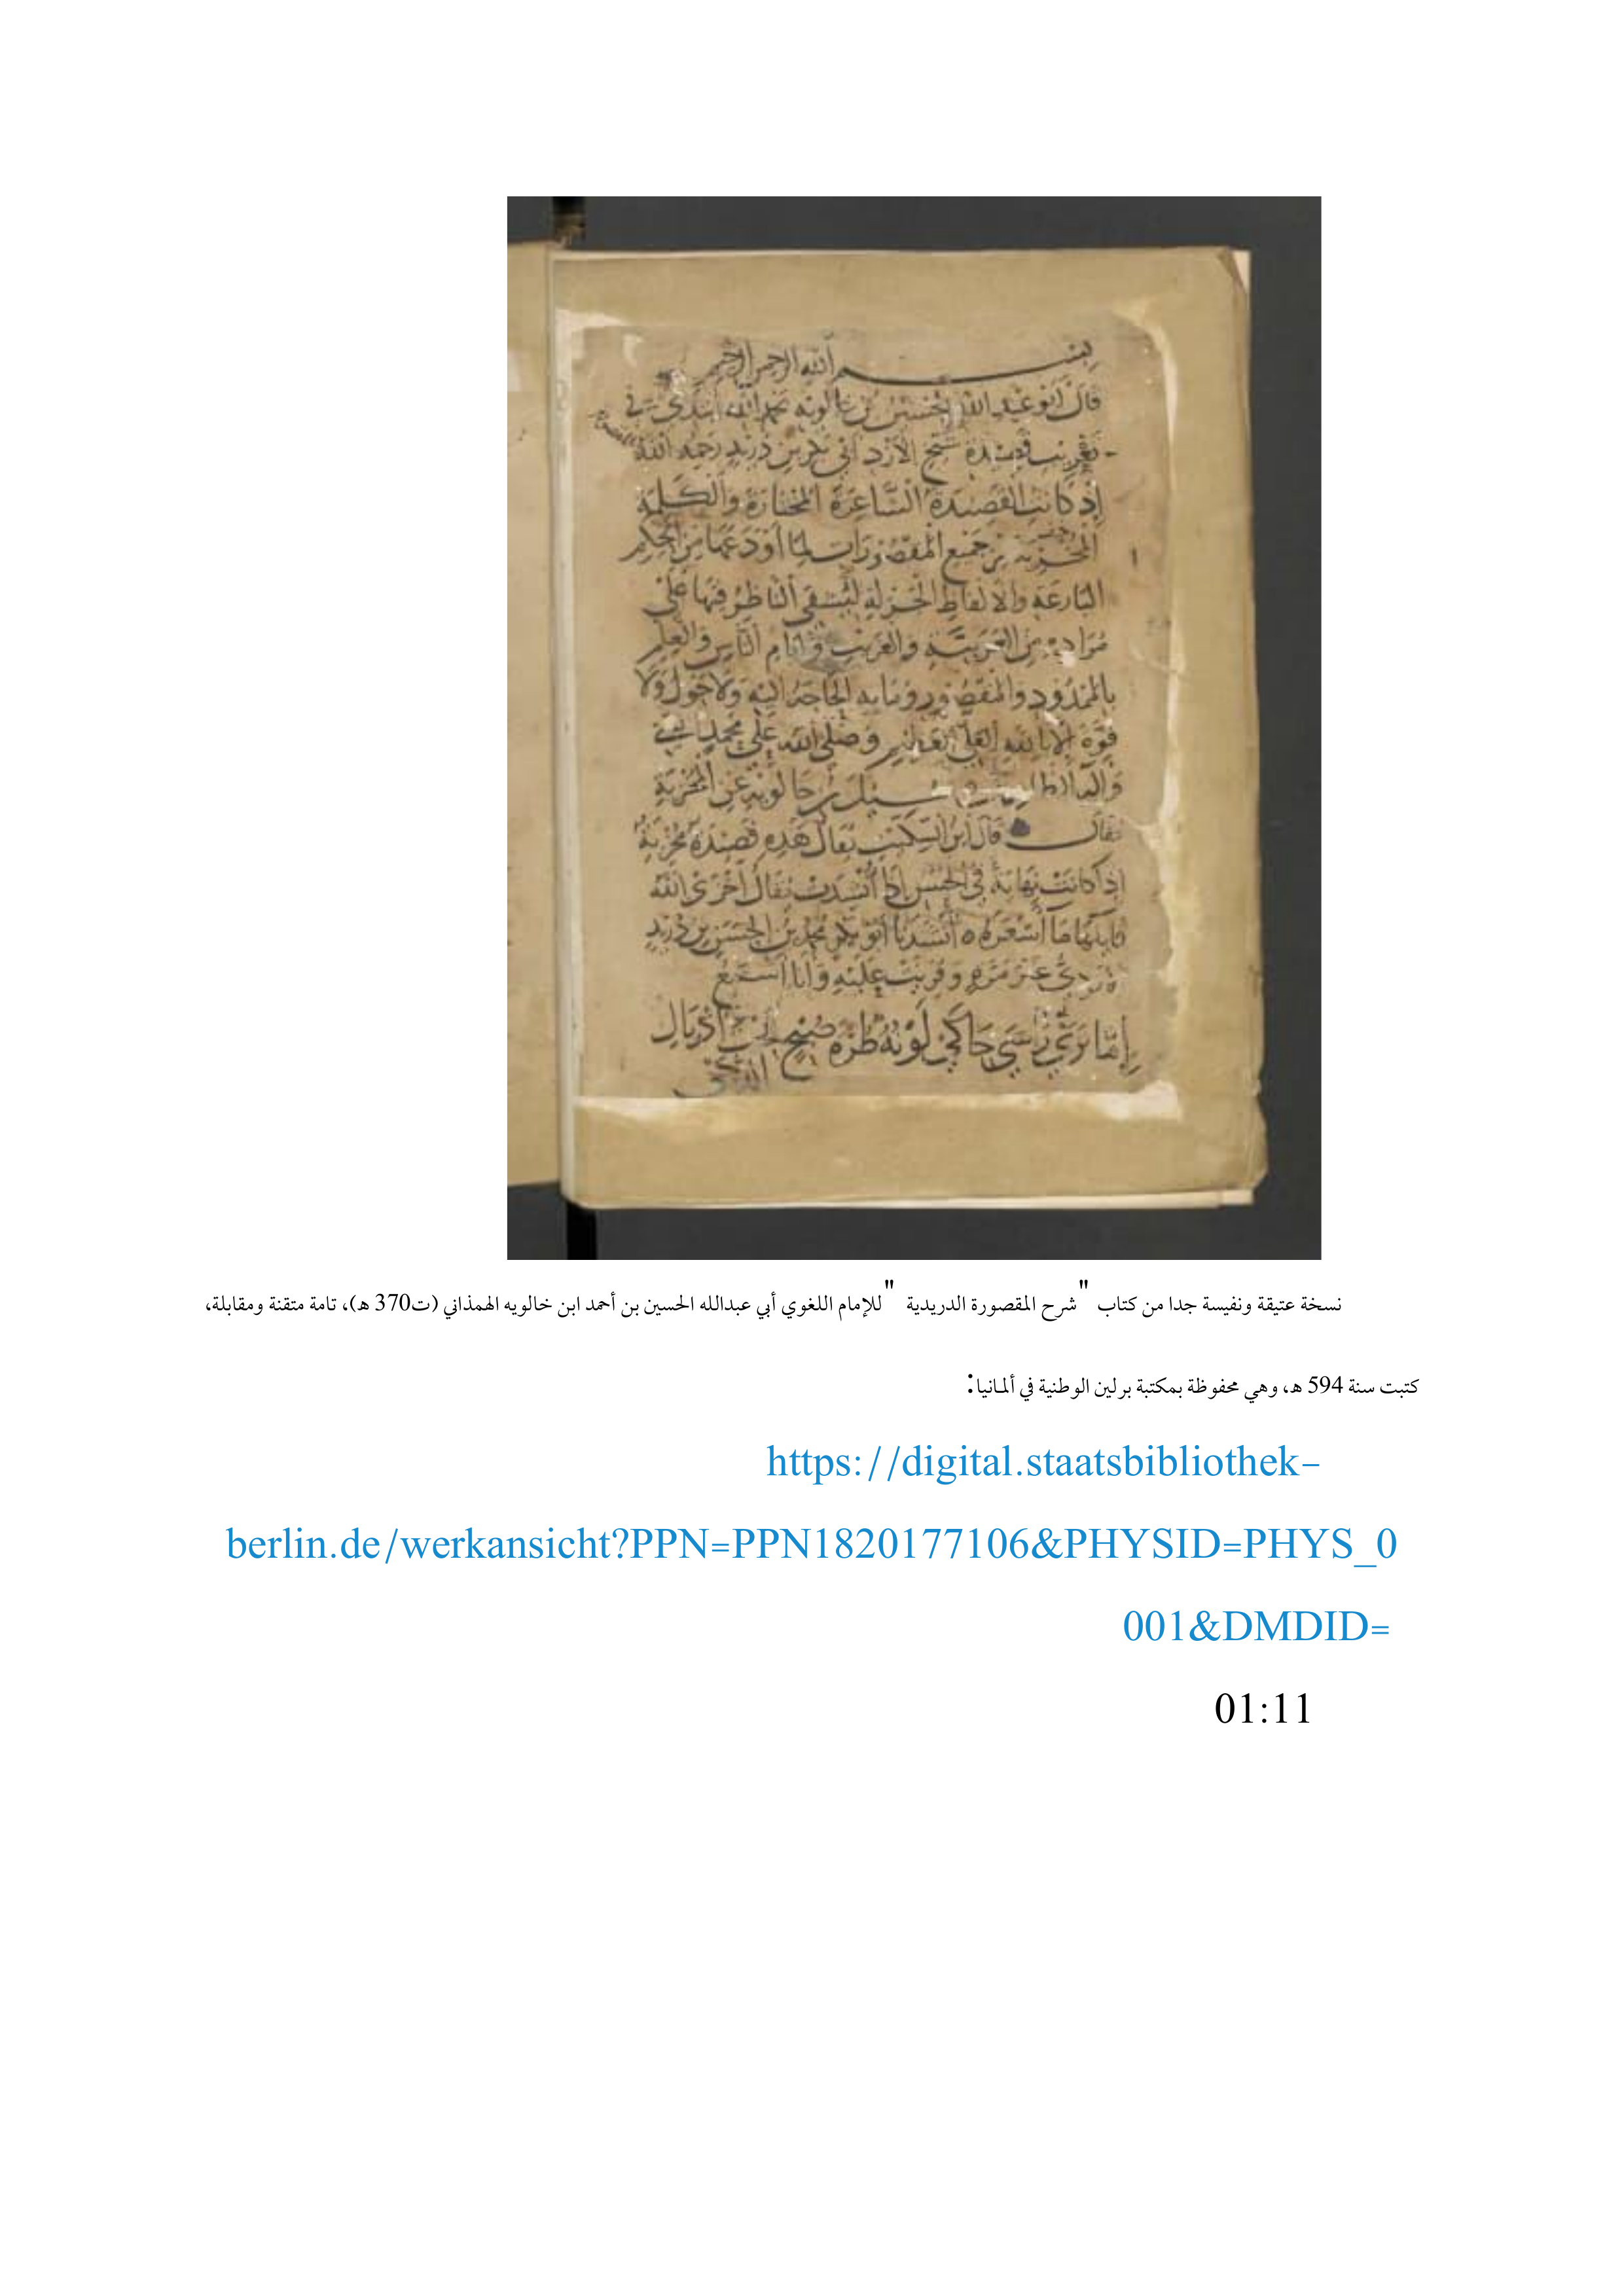 بسم الله الرحمن الرحيم
قال أبو عبد الله الحسين بن خالويه بحمد الله أبتدئ في
قصيدة شيخ الأزد أبي بكر بن دريد رحمه الله
إذ كانت القصيدة الشاعرة المختارة والكلمة
المخزية من جميع المقصورات لما أودعها من الحكم
البارعة والألفاظ الجزلة الناظر فيها على
مراده من العربية والغريب وأيام الناس والعلم
بالممدود والمقصور وما به الحاجة إليه ولا حول ولا
قوة إلا بالله العلي العظيم وصلى الله على محمد النبي
وآله سئل بن خالويه عن المخزية
فقال قال ابن السكيت يقال هذه قصيدة مخزية
إذا كانت نهاية في الحسن إذا أنشدت يقال أخزى الله
قايلها ما أشعره أنشدنا أبو بكر محمد بن الحسن بن دريد
الأزدي غير مرة وقريت عليه وأنا أسمع
إما تري رأسي حاكى لونه طرة صبح تحت أذيال
الدجى
نسخة عتيقة ونفيسة جدا من كتاب "شرح المقصورة الدريدية" للإمام اللغوي أبي عبدالله الحسين بن أحمد ابن خالويه الهمذاني (ت370 هـ)، تامة متقنة ومقابلة،
كتبت سنة 594 هـ، وهي محفوظة بمكتبة برلين الوطنية في ألمانيا:
https://digital.staatsbibliothek-
berlin.de/werkansicht?PPN=PPN1820177106&PHYSID=PHYS_0
001&DMDID=
01:11